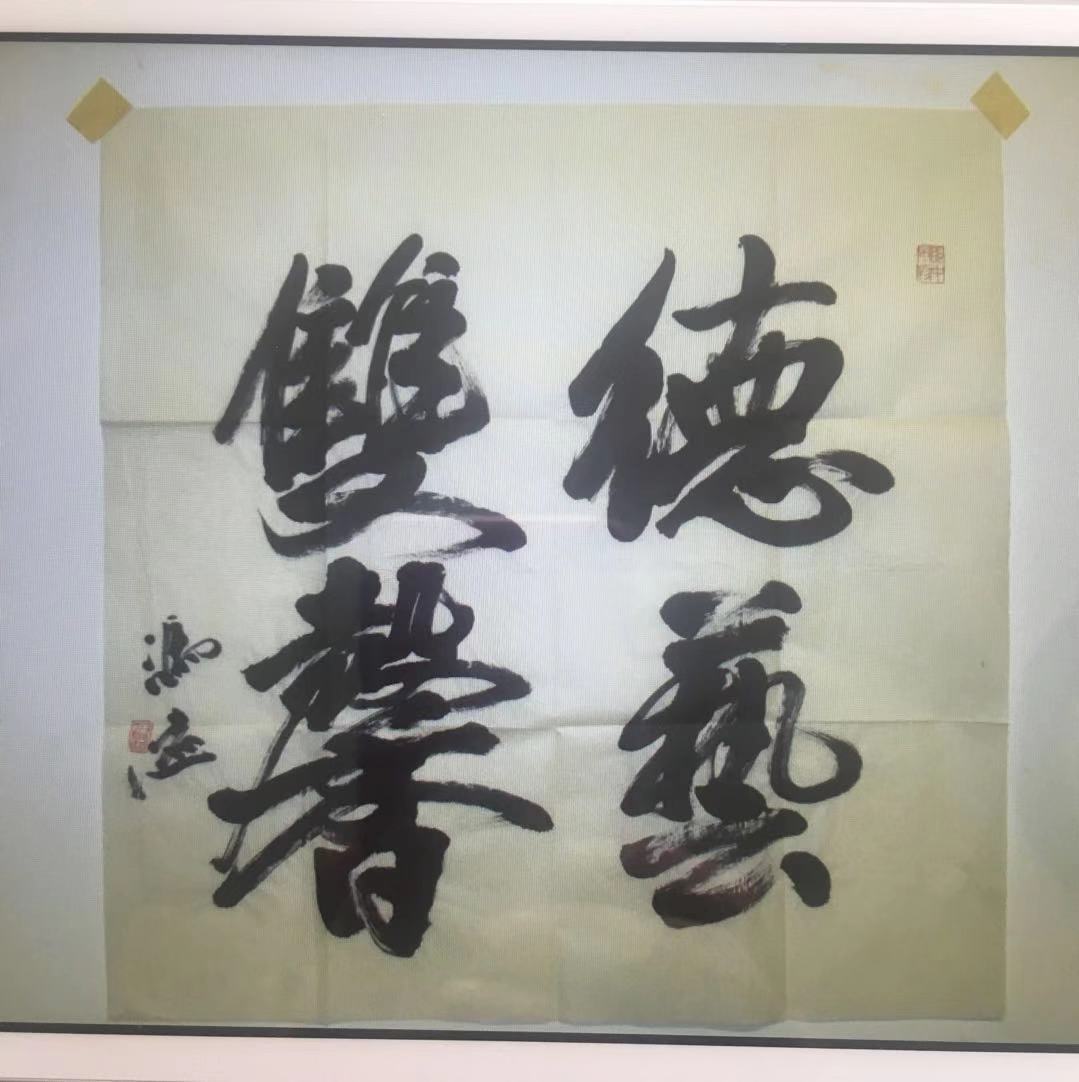 德藝
雙馨